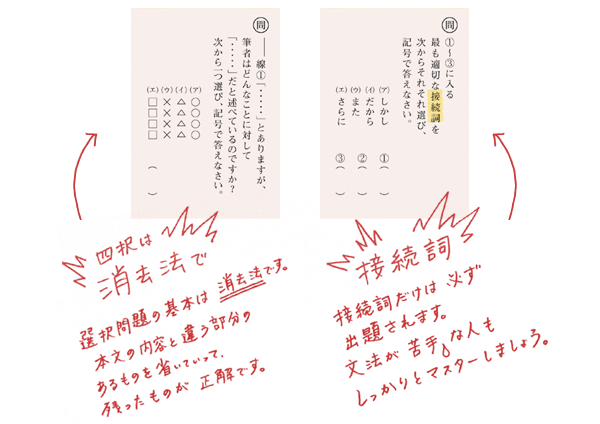 問
①〜③に入る
最も適切な接続詞を
次からそれぞれ選び、
記号で答えなさい。
(ア)しかし
(イ)だから
(ウ)また
(エ)さらに
①( )
②( )
③( )
接続詞
接続詞だけは必ず
出題されます。
文法が苦手な人も
しっかりとマスターしましょう。
問
――線①「・・・・・」とありますが、
筆者はどんなことに対して
「・・・・・」だと述べているのですか?
次から一つ選び、記号で答えなさい。
(ア)○○○○
(イ)△△△△
(ウ)××××
(エ)□□□□
( )
四択は
消去法で
選択問題の基本は消去法です。
本文の内容と違う部分の
あるものを省いていって、
残ったものが正解です。